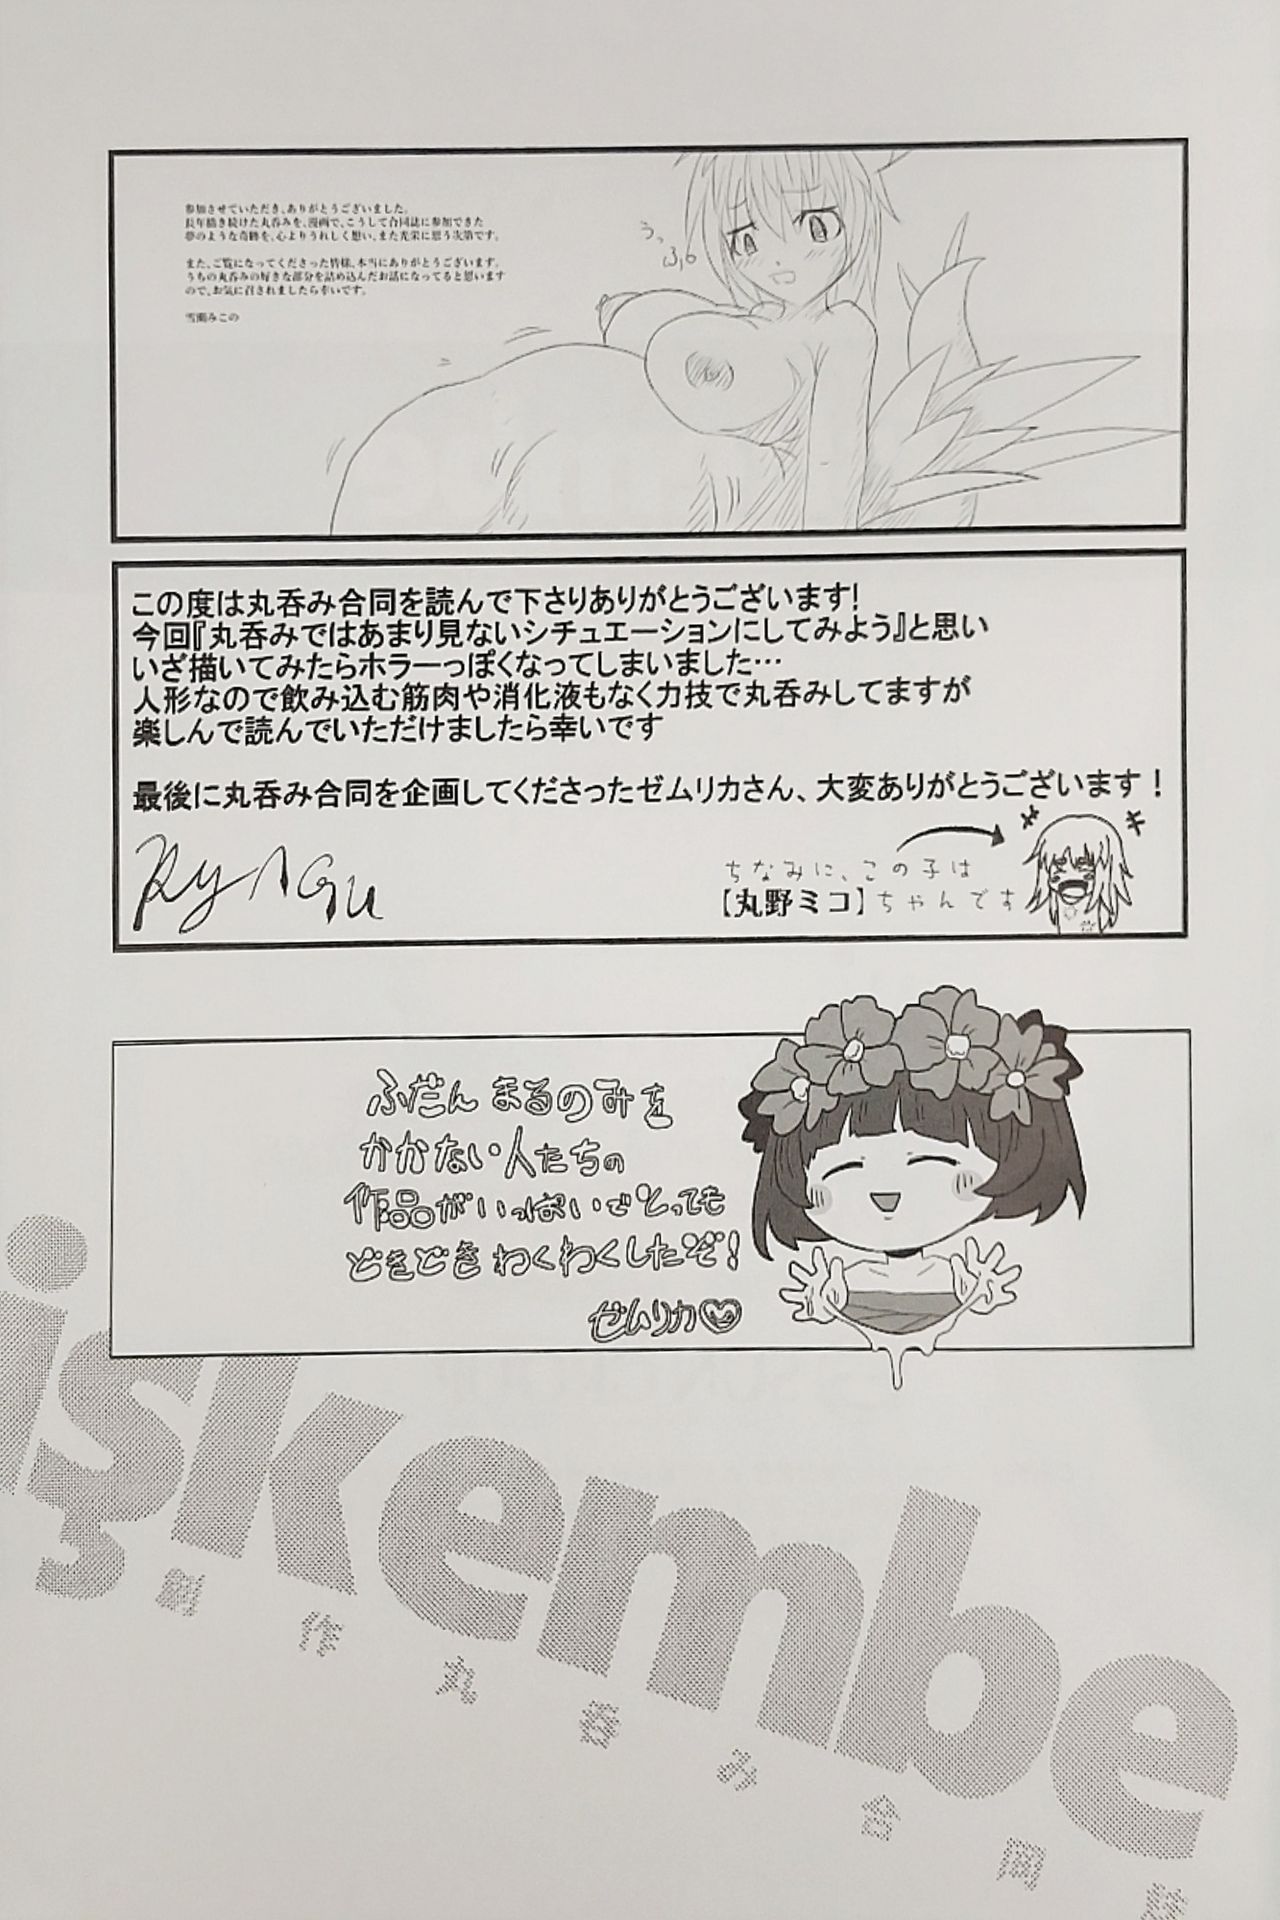 参加させていただき、ありがとうございました。
長年描き続けた丸呑みを、漫画で、こうして合同誌に参加できた
夢のような奇跡を、心よりうれしく想い、また光栄に思う次第です。
また、ご覧になってくださった皆様、本当にありがとうございます。
うちの丸呑みの好きな部分を詰め込んだお話になってると思います
ので、お気に召されましたら幸いです。
みこの
うっ
ふぅ
この度は丸呑み合同を読んで下さりありがとうございます!
今回『丸呑みではあまり見ないシチュエーションにしてみよう』と思い
いざ描いてみたらホラーっぽくなってしまいました…
人形なので飲み込む筋肉や消化液もなく力技で丸呑みしてますが
楽しんで読んでいただけましたら幸いです
最後に丸呑み合同を企画してくださったゼムリカさん、大変ありがとうございます！
ちなみに、この子は
【丸野ミコ】ちゃんです
ふだん まるのみを
かかない人たちの
作品がいっぱいでとっても
どきどきわくわくしたぞ!
ゼムリカ
işkembe
創作丸呑み合同誌